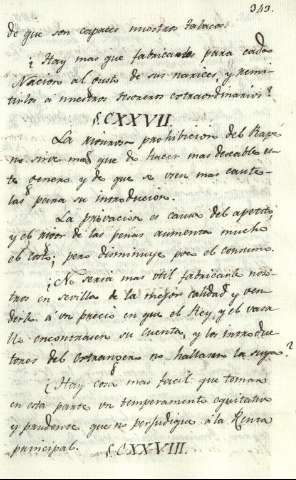 343.
de que son capaces nuestros tabacos.
¿Hay mas que fabricarlos para cada
Nacion al gusto de sus narices, y remi-
tirlos à nuestros tesoreros extraordinarios?
§CXXVII.
La rigurosa prohibicion del Rapé
no sirve mas que de hacer mas deseable es-
te genero y de que se usen mas caute-
las para su introducion.
La privacion es causa del apetito
y el rigor de las penas aumenta mucho
el costo; pero disminuye poco el consumo.
¿No seria mas util fabricarle noso-
tros en Sevilla de la mejor calidad y ven-
derle à un precio en que el Rey, y el vasa-
llo encontrasen su cuenta, y los introduc-
tores del extrangero no hallasen la suya?
¿Hay cosa mas facil que tomar
en esta parte un temperamento equitativo
y prudente que no perjudique à la Renta
principal.
§CXXVIII.